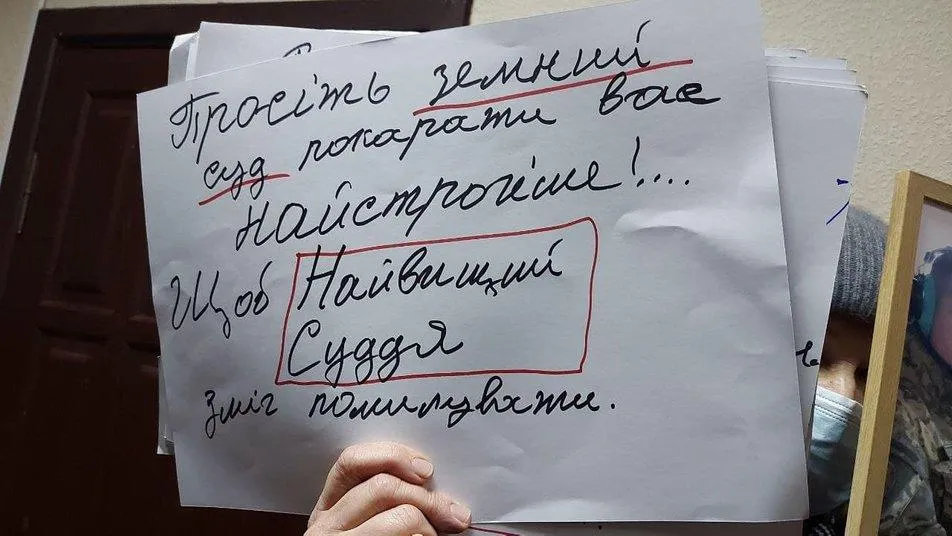 Просіть земний
суд покарати вас
найстрогіше!....
Щоб Найвищий
Суддя
зміг помилувати.